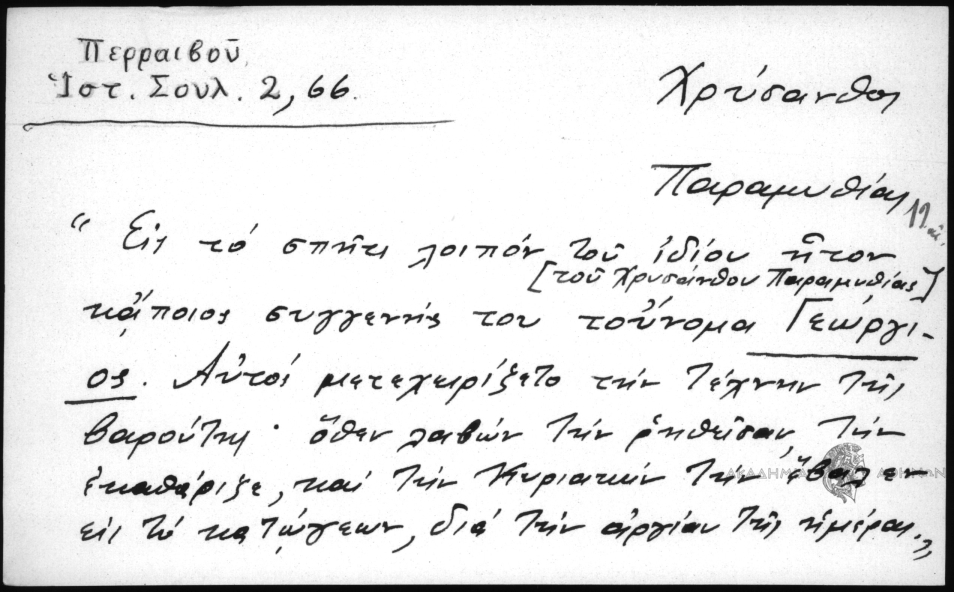 Περραιβοῦ,
Ἱστ. Σουλ. 2, 66.
Χρύσανθος
Παραμυθίας
“ Εἰς τό σπῆτι λοιπόν τοῦ ἰδίου ἦτον
[τοῦ Χρυσάνθου Παραμυθίας]
κᾄποιος συγγενής του τοὔνομα Γεώργι-
ος. Αὐτοί μετεχειρίζετο τήν τέχνην τῆς
βαρούτης· ὅθεν λαβών τήν ῥηθεῖσαν, τήν
ἐκαθάριζε, καί τήν Κυριακήν τήν ἔβαλεν
εἰς τό κατώγεων, διά τήν ἀργίαν τῆς ἡμέρας.„
ΑΚΑΔΗΜΙΑ ΑΘΗΝΩΝ